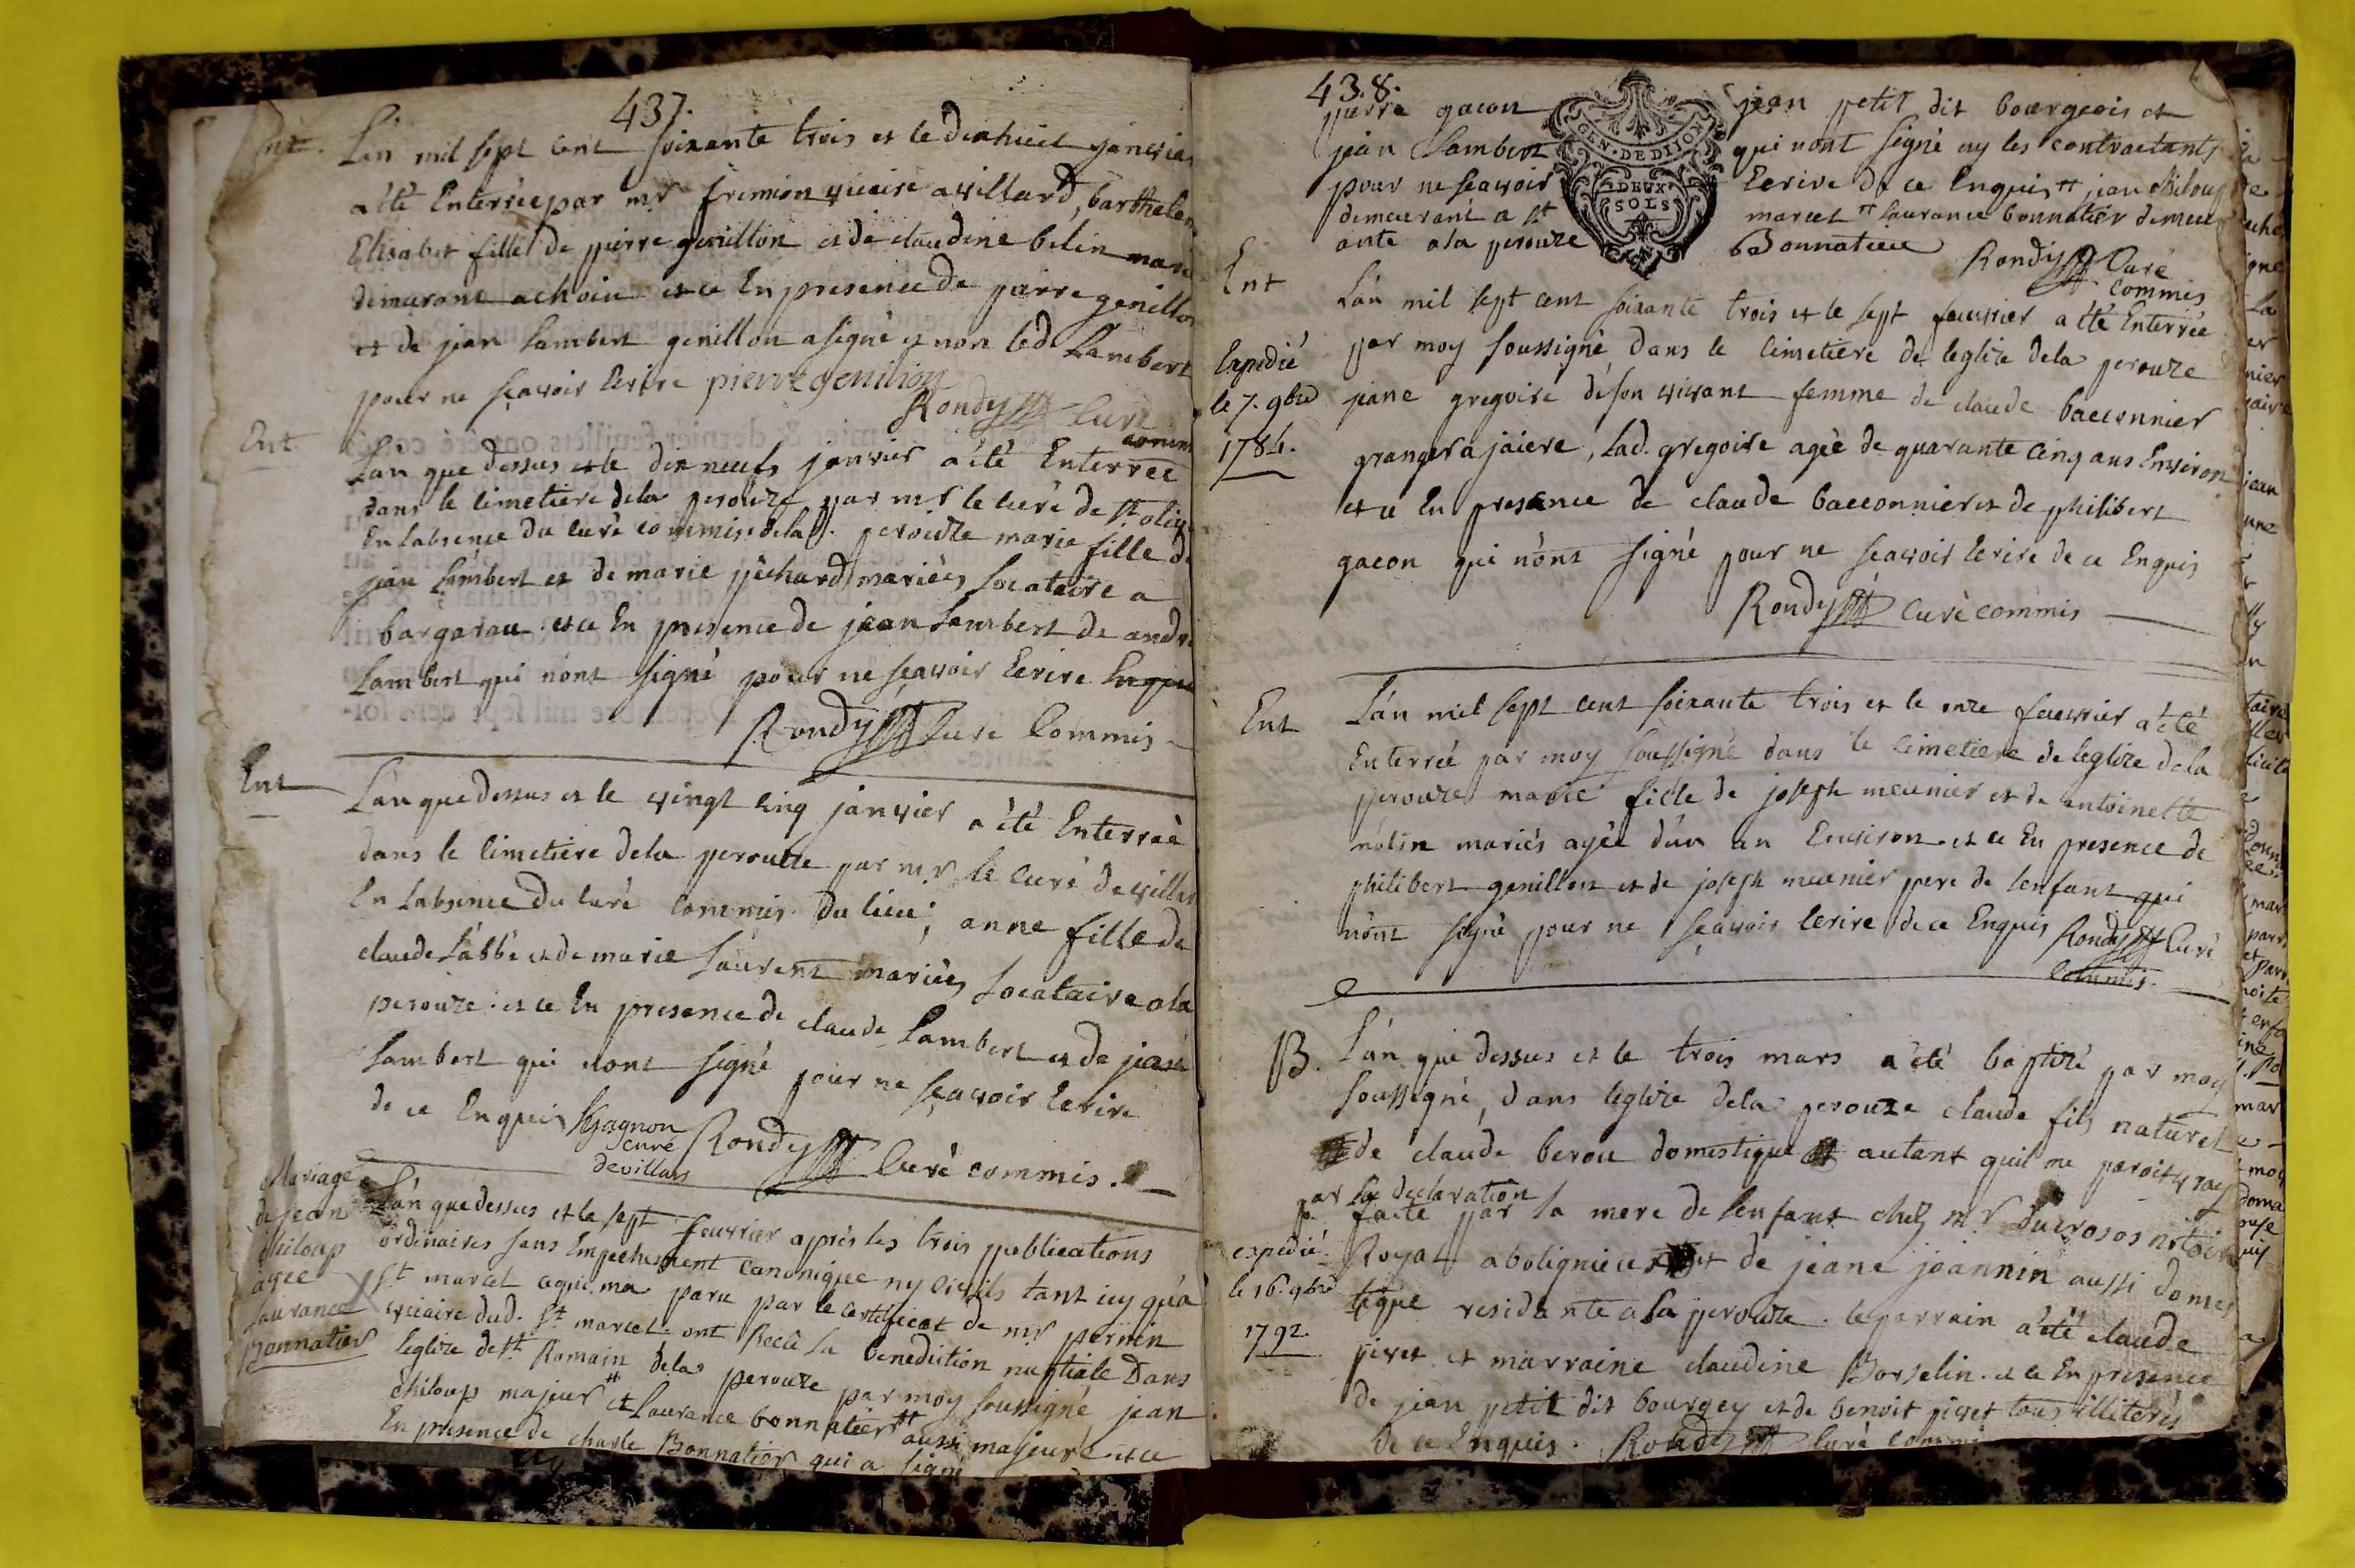 437.
Ent. L'an mil sept cent soixante trois et le dixhuict janvier
a été Enterrée par mr fremion vicaire a villard, barthelem
Elisabet fille de pierre genillon et de claudine belin marié
demeurant a choin et ce En presence de pierre genillon
et de jean Lambert genillon a signé et non led Lambert
pour ne sçavoir Ecrire pierre genillon
Rondy Curé
commis
Ent L'an que dessus et le dix neufs janvier a été Enterrée
dans le cimetiere dela perouze par mr le curé de st oliv
En l'absence du curé commis dela perouze marie fille de
jean Lambert et de marie pichard mariés Locataire a
bargarau et ce En presence de jean Lambert de andré
Lambert qui n'ont signé pour ne sçavoir Ecrire Enquis
Rondy Curé Commis
Ent L'an que dessus et le vingt cinq janvier a été Enterrée
dans le cimetiere dela perouze par mr le curé de villars
En l'absence du curé commis du lieu; anne fille de
claude L'abbé et de marie Laurent mariés Locataire a la
perouze et ce En presence de claude Lambert et de jean
Lambert qui n'ont signé pour ne sçavoir Ecrire
de ce Enquis Gagnon
curé
devillars
Rondy Curé commis.
Mariage
de jean
chiloup
avec
Laurance
Bonnatier
L'an que dessus et le sept feuvrier après les trois publications
ordinaires sans Empechement canonique ny civils tant icy qu'a
st marcel ce qui ma paru par le certificat de mr pernin
vicaire dud. st marcel ont Recu la benediction nuptiale Dans
leglize de st Romain dela perouze par moy soussigné jean
chiloup majeur et Laurance bonnatier aussi majeure et ce
En presence de charle Bonnatier qui a signé
438.
pierre gacon jean petit dit bourgeois et
jean Lambert qui nont signé ny les contractants
pour ne sçavoir Ecrire de ce Enquis jean chiloup
demeurant a st marcel Laurance bonnatier demeur
ante a la perouze Bonnatier Rondy Curé
commis
GEN. DE DIJON
DEUX
SOLS
Ent L'an mil sept cent soixante trois et le sept feuvrier a été Enterrée
par moy soussigné dans le cimetiere de leglize dela perouze
Expedié
le 7. 9bre
1784.
jeane gregoire de son vivant femme de claude bacconnier
granger a jaiere, Lad. gregoire agée de quarante cinq ans Environ
et ce En presence de claude bacconnier et de philibert
gacon qui n'ont signé pour ne sçavoir Ecrire de ce Enquis
Rondy Curé commis
Ent L'an mil sept cent soixante trois et le onze feuvrier a été
Enterrée par moy soussigné dans le cimetiere de leglize dela
perouze marie fille de joseph meunier et de antoinette
molin mariés agée d'un an Environ et ce En presence de
philibert genillon et de joseph meunier pere de lenfant qui
n'ont signé pour ne sçavoir Ecrire de ce Enquis Rondy Curé
commis.
B. L'an que dessus et le trois mars a été baptizé par moy
soussigné, dans leglize dela perouze claude fils naturel
de claude berou domestique autant quil me paroit vray
par la declaration
faite par la mere de lenfant chez mr ducrosos notaire
expedié
le 16. 9bre
1792.
Royal a bolignieu et de jeane joannin aussi domes
tique residante a la perouze. le parrain a été claude
pivet et marraine claudine Borselin. et ce En presence
de jean petit dit bourgey et de benoit pivet tous illiterés
de ce Enquis. Rondy curé commis